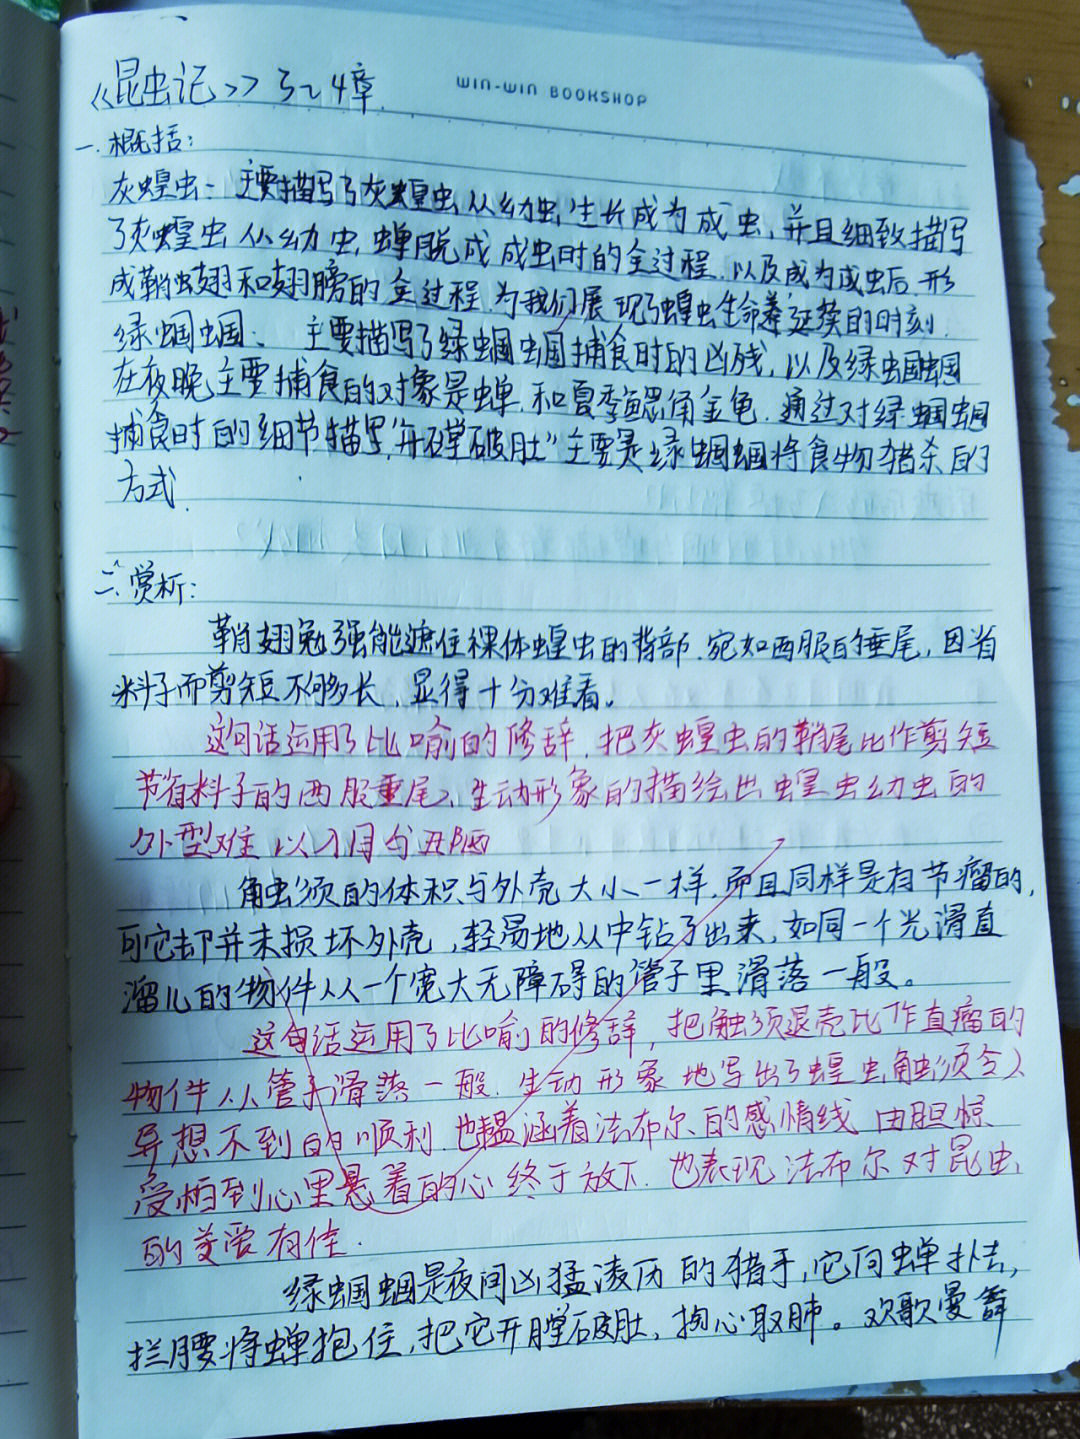 《昆虫记》3~4章
WIN-WIN BOOKSHOP
一.概括:
灰蝗虫: 主要描写了灰蝗虫从幼虫生长成为成虫,并且细致描写
了灰蝗虫从幼虫蝉脱成成虫时的全过程.以及成为成虫后形
成鞘虫翅和翅膀的全过程.为我们展现了蝗虫生命蔓延葵的时刻.
绿蝈蝈: 主要描写了绿蝈蝈捕食时的凶残,以及绿蝈蝈
在夜晚主要捕食的对象是蝉.和夏季鳃角金龟.通过对绿蝈蝈
捕食时的细节描写,"开膛破肚"主要是绿蝈蝈将食物猎杀的
方式.
二、赏析:
鞘翅勉强能遮住裸体蝗虫的背部.宛如西服的垂尾,因省
料子而剪短不够长,显得十分难看。
这句话运用了比喻的修辞.把灰蝗虫的鞘尾比作剪短
节省料子的西服垂尾、生动形象的描绘出蝗虫幼虫的
外型难以入目与丑陋
角虫须的体积与外壳大小一样.而且同样是有节瘤的,
可它却并未损坏外壳,轻易地从中钻了出来,如同一个光滑直
溜儿的物件从一个宽大无障碍的管子里滑落一般。
这句话运用了比喻的修辞,把触须退壳比作直瘤的
物件从管子滑落一般.生动形象地写出了蝗虫触须令人
异想不到的顺利.也韫涵着法布尔的感情线 由胆惊
受怕到心里悬着的心终于放下.也表现法布尔对昆虫
的关爱有佳.
绿蝈蝈是夜间凶猛凌厉的猎手,它向蝉扑去,
拦腰将蝉抱住,把它开膛破肚,掏心取肺。欢歌曼舞